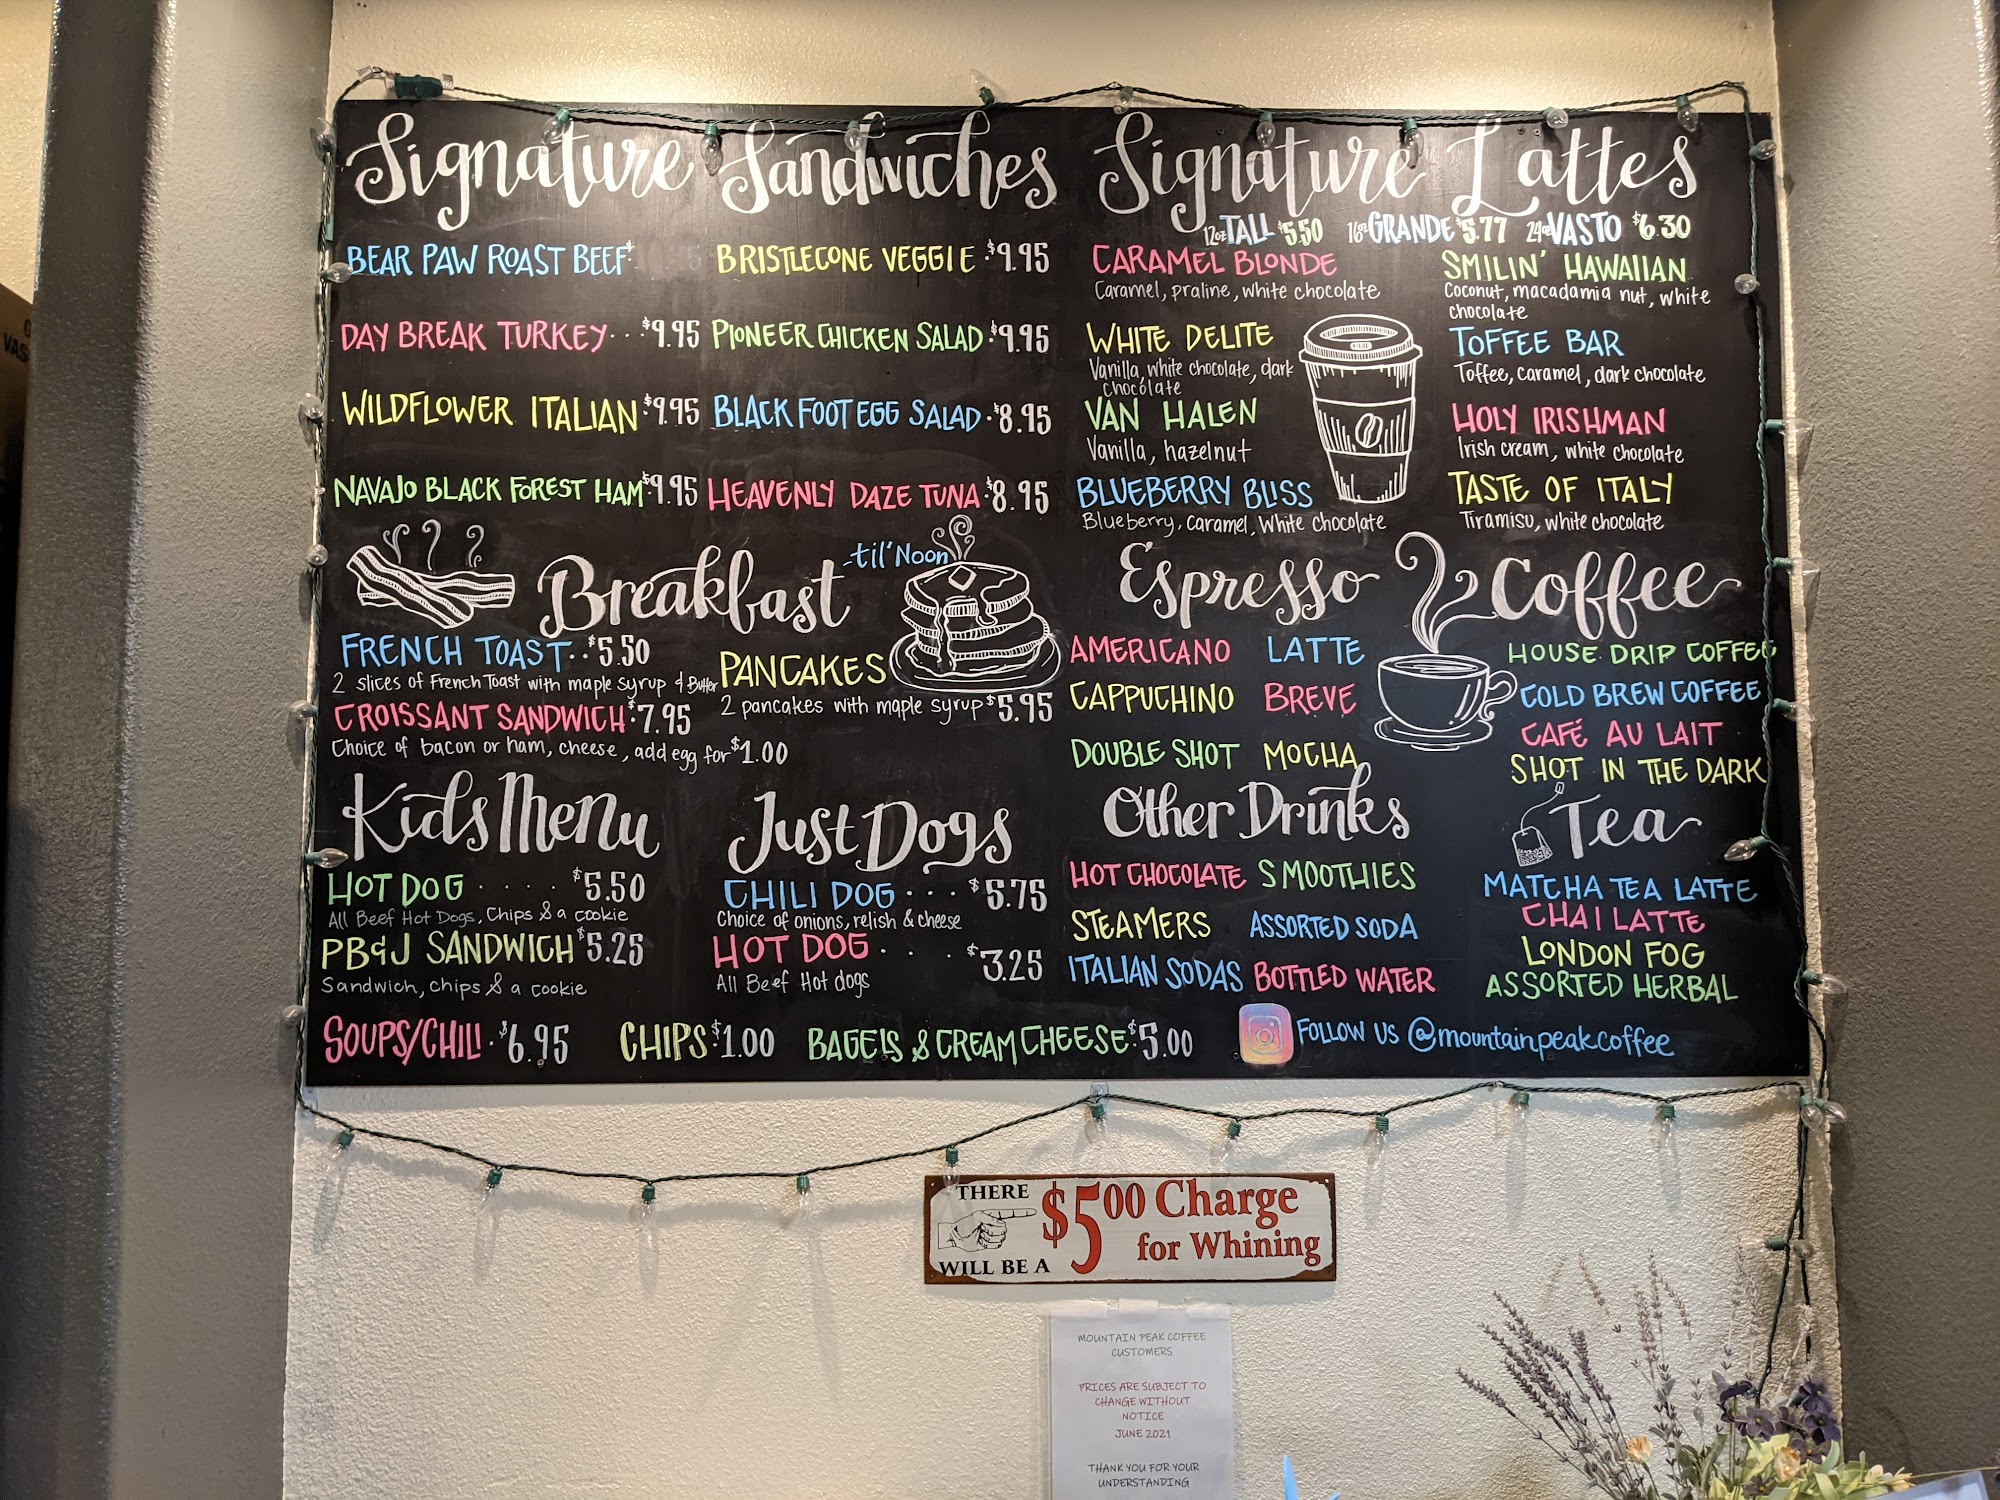 Signature Sandwiches
BEAR PAW ROAST BEEF $
BRISTLECONE VEGGIE . $9.95
DAY BREAK TURKEY . . . $9.95
PIONEER CHICKEN SALAD . $9.95
WILDFLOWER ITALIAN . $9.95
BLACK FOOT EGG SALAD . $8.95
NAVAJO BLACK FOREST HAM $9.95
HEAVENLY DAZE TUNA . $8.95
Breakfast -til' Noon
FRENCH TOAST . . $5.50
2 slices of French Toast with maple syrup & Butter
CROISSANT SANDWICH . $7.95
Choice of bacon or ham, cheese, add egg for $1.00
PANCAKES
2 pancakes with maple syrup $5.95
Kids Menu
HOT DOG . . . . $5.50
All Beef Hot Dogs, Chips & a cookie
PB&J SANDWICH $5.25
Sandwich, chips & a cookie
Just Dogs
CHILI DOG . . . $5.75
Choice of onions, relish & cheese
HOT DOG . . . $3.25
All Beef Hot dogs
SOUPS/CHILI . $6.95
CHIPS . $1.00
BAGELS & CREAM CHEESE . $5.00
Signature Lattes
12oz TALL $5.50 16oz GRANDE $5.77 24oz VASTO $6.30
CARAMEL BLONDE
Caramel, praline, white chocolate
WHITE DELITE
Vanilla, white chocolate, dark
chocolate
VAN HALEN
Vanilla, hazelnut
BLUEBERRY BLISS
Blueberry, caramel, White chocolate
SMILIN' HAWAIIAN
Coconut, macadamia nut, white
chocolate
TOFFEE BAR
Toffee, caramel, dark chocolate
HOLY IRISHMAN
Irish cream, white chocolate
TASTE OF ITALY
Tiramisu, white chocolate
Espresso
AMERICANO
LATTE
CAPPUCHINO
BREVE
DOUBLE SHOT
MOCHA
Coffee
HOUSE DRIP COFFEE
COLD BREW COFFEE
CAFÉ AU LAIT
SHOT IN THE DARK
Other Drinks
HOT CHOCOLATE
SMOOTHIES
STEAMERS
ASSORTED SODA
ITALIAN SODAS
BOTTLED WATER
Tea
MATCHA TEA LATTE
CHAI LATTE
LONDON FOG
ASSORTED HERBAL
FOLLOW US @mountainpeakcoffee
THERE
WILL BE A
$5.00 Charge
for Whining
MOUNTAIN PEAK COFFEE
CUSTOMERS
PRICES ARE SUBJECT TO
CHANGE WITHOUT
NOTICE
JUNE 2021
THANK YOU FOR YOUR
UNDERSTANDING